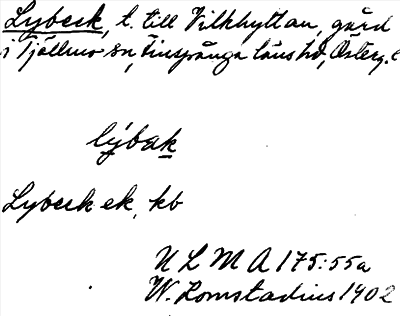 Lybeck, t. till Vilkhyttan, gård
i Tjällmo sn, Finspånga läns hd, Österg. l
lýbak
Lybeck ek, kb
U L M A 175:55a
W. Lomstadius 1902